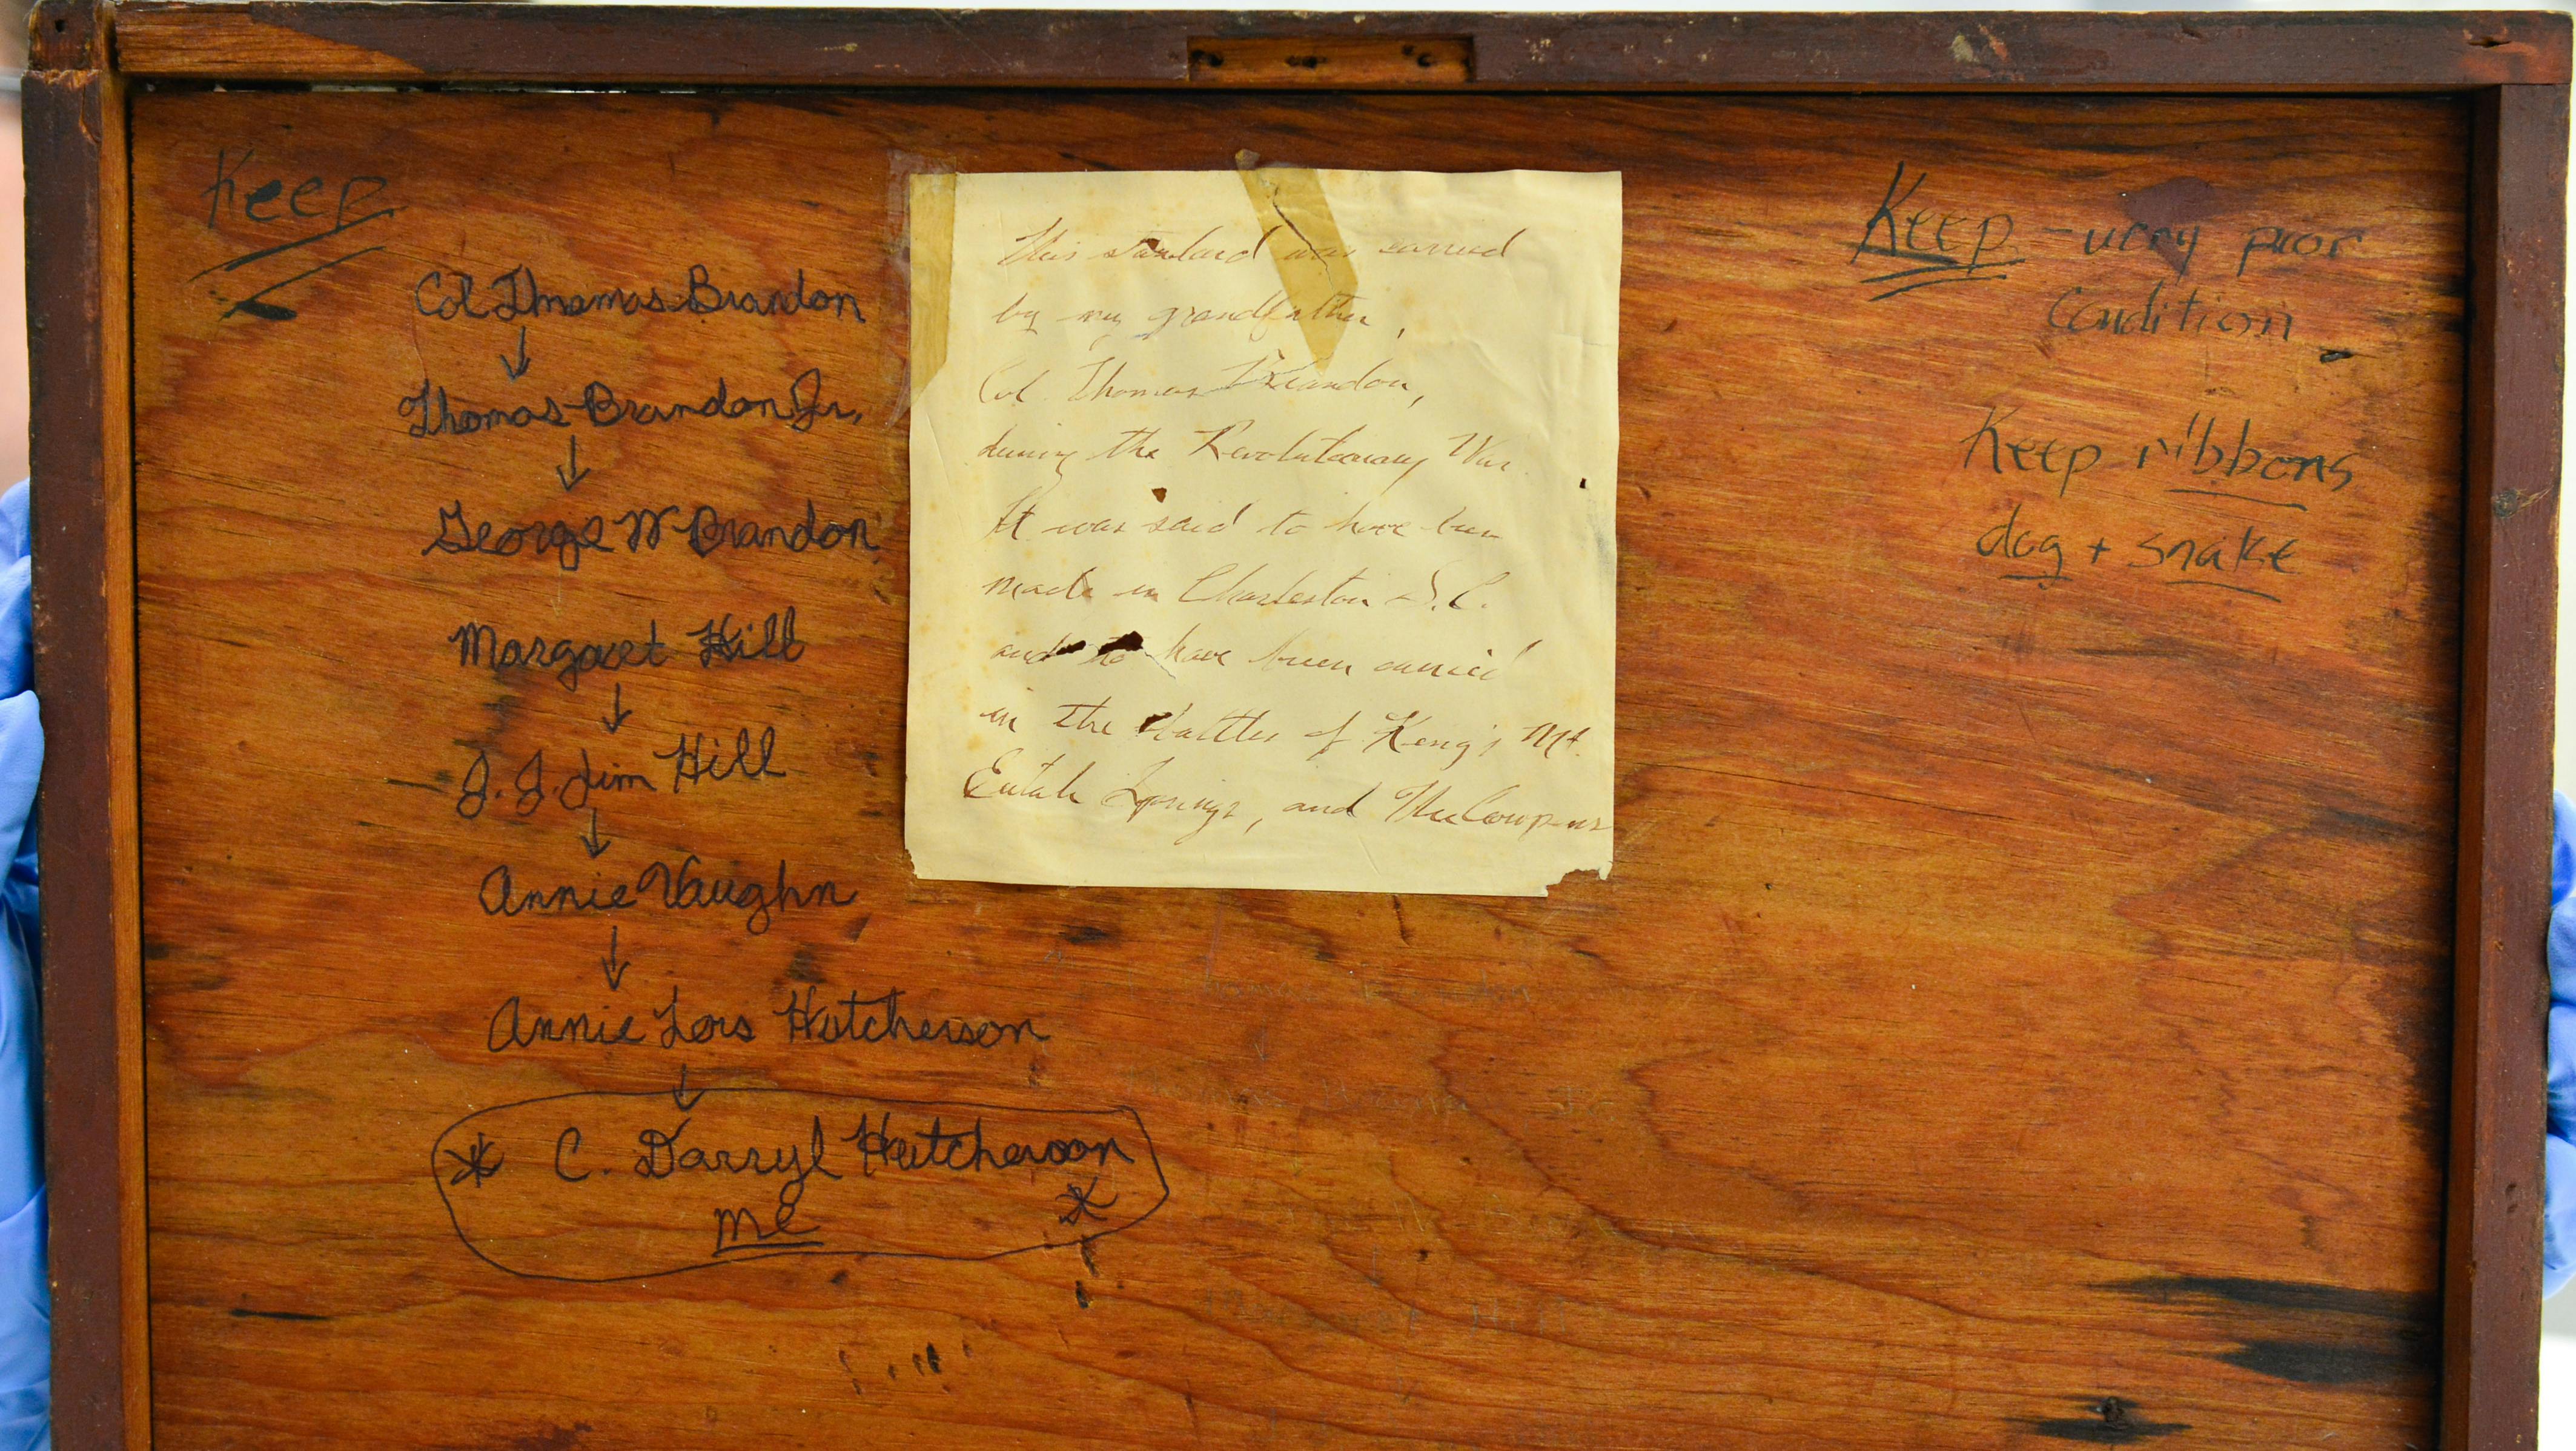 Keep
Col Thomas Brandon
↓
Thomas Brandon Jr.
↓
George W Brandon
Margaret Hill
↓
J. J. Jim Hill
↓
Annie Vaughn
↓
Annie Lois Hutcherson
↓
* C. Darryl Hutcherson
me *
This standard was carried
by my grandfather,
Col. Thomas Brandon,
during the Revolutionary War.
It was said to have been
made in Charleston S.C.
and to have been carried
in the battles of King's Mt.
Eutah Springs, and The Cowpens
Keep - very poor
Condition
Keep ribbons
dog + snake
Thomas Brandon